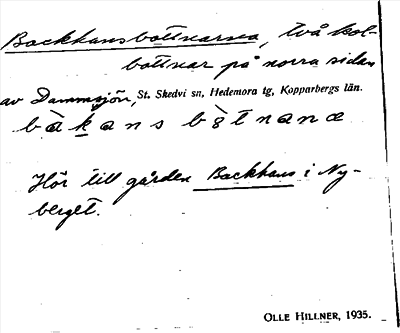 Backhansbottnarna, två kol-
bottnar på norra sidan
av Dammsjön, St. Skedvi sn, Hedemora tg, Kopparbergs län.
bàkans bòtnanæ
Hör till gården Backhans i Ny-
berget.
OLLE HILLNER, 1935.